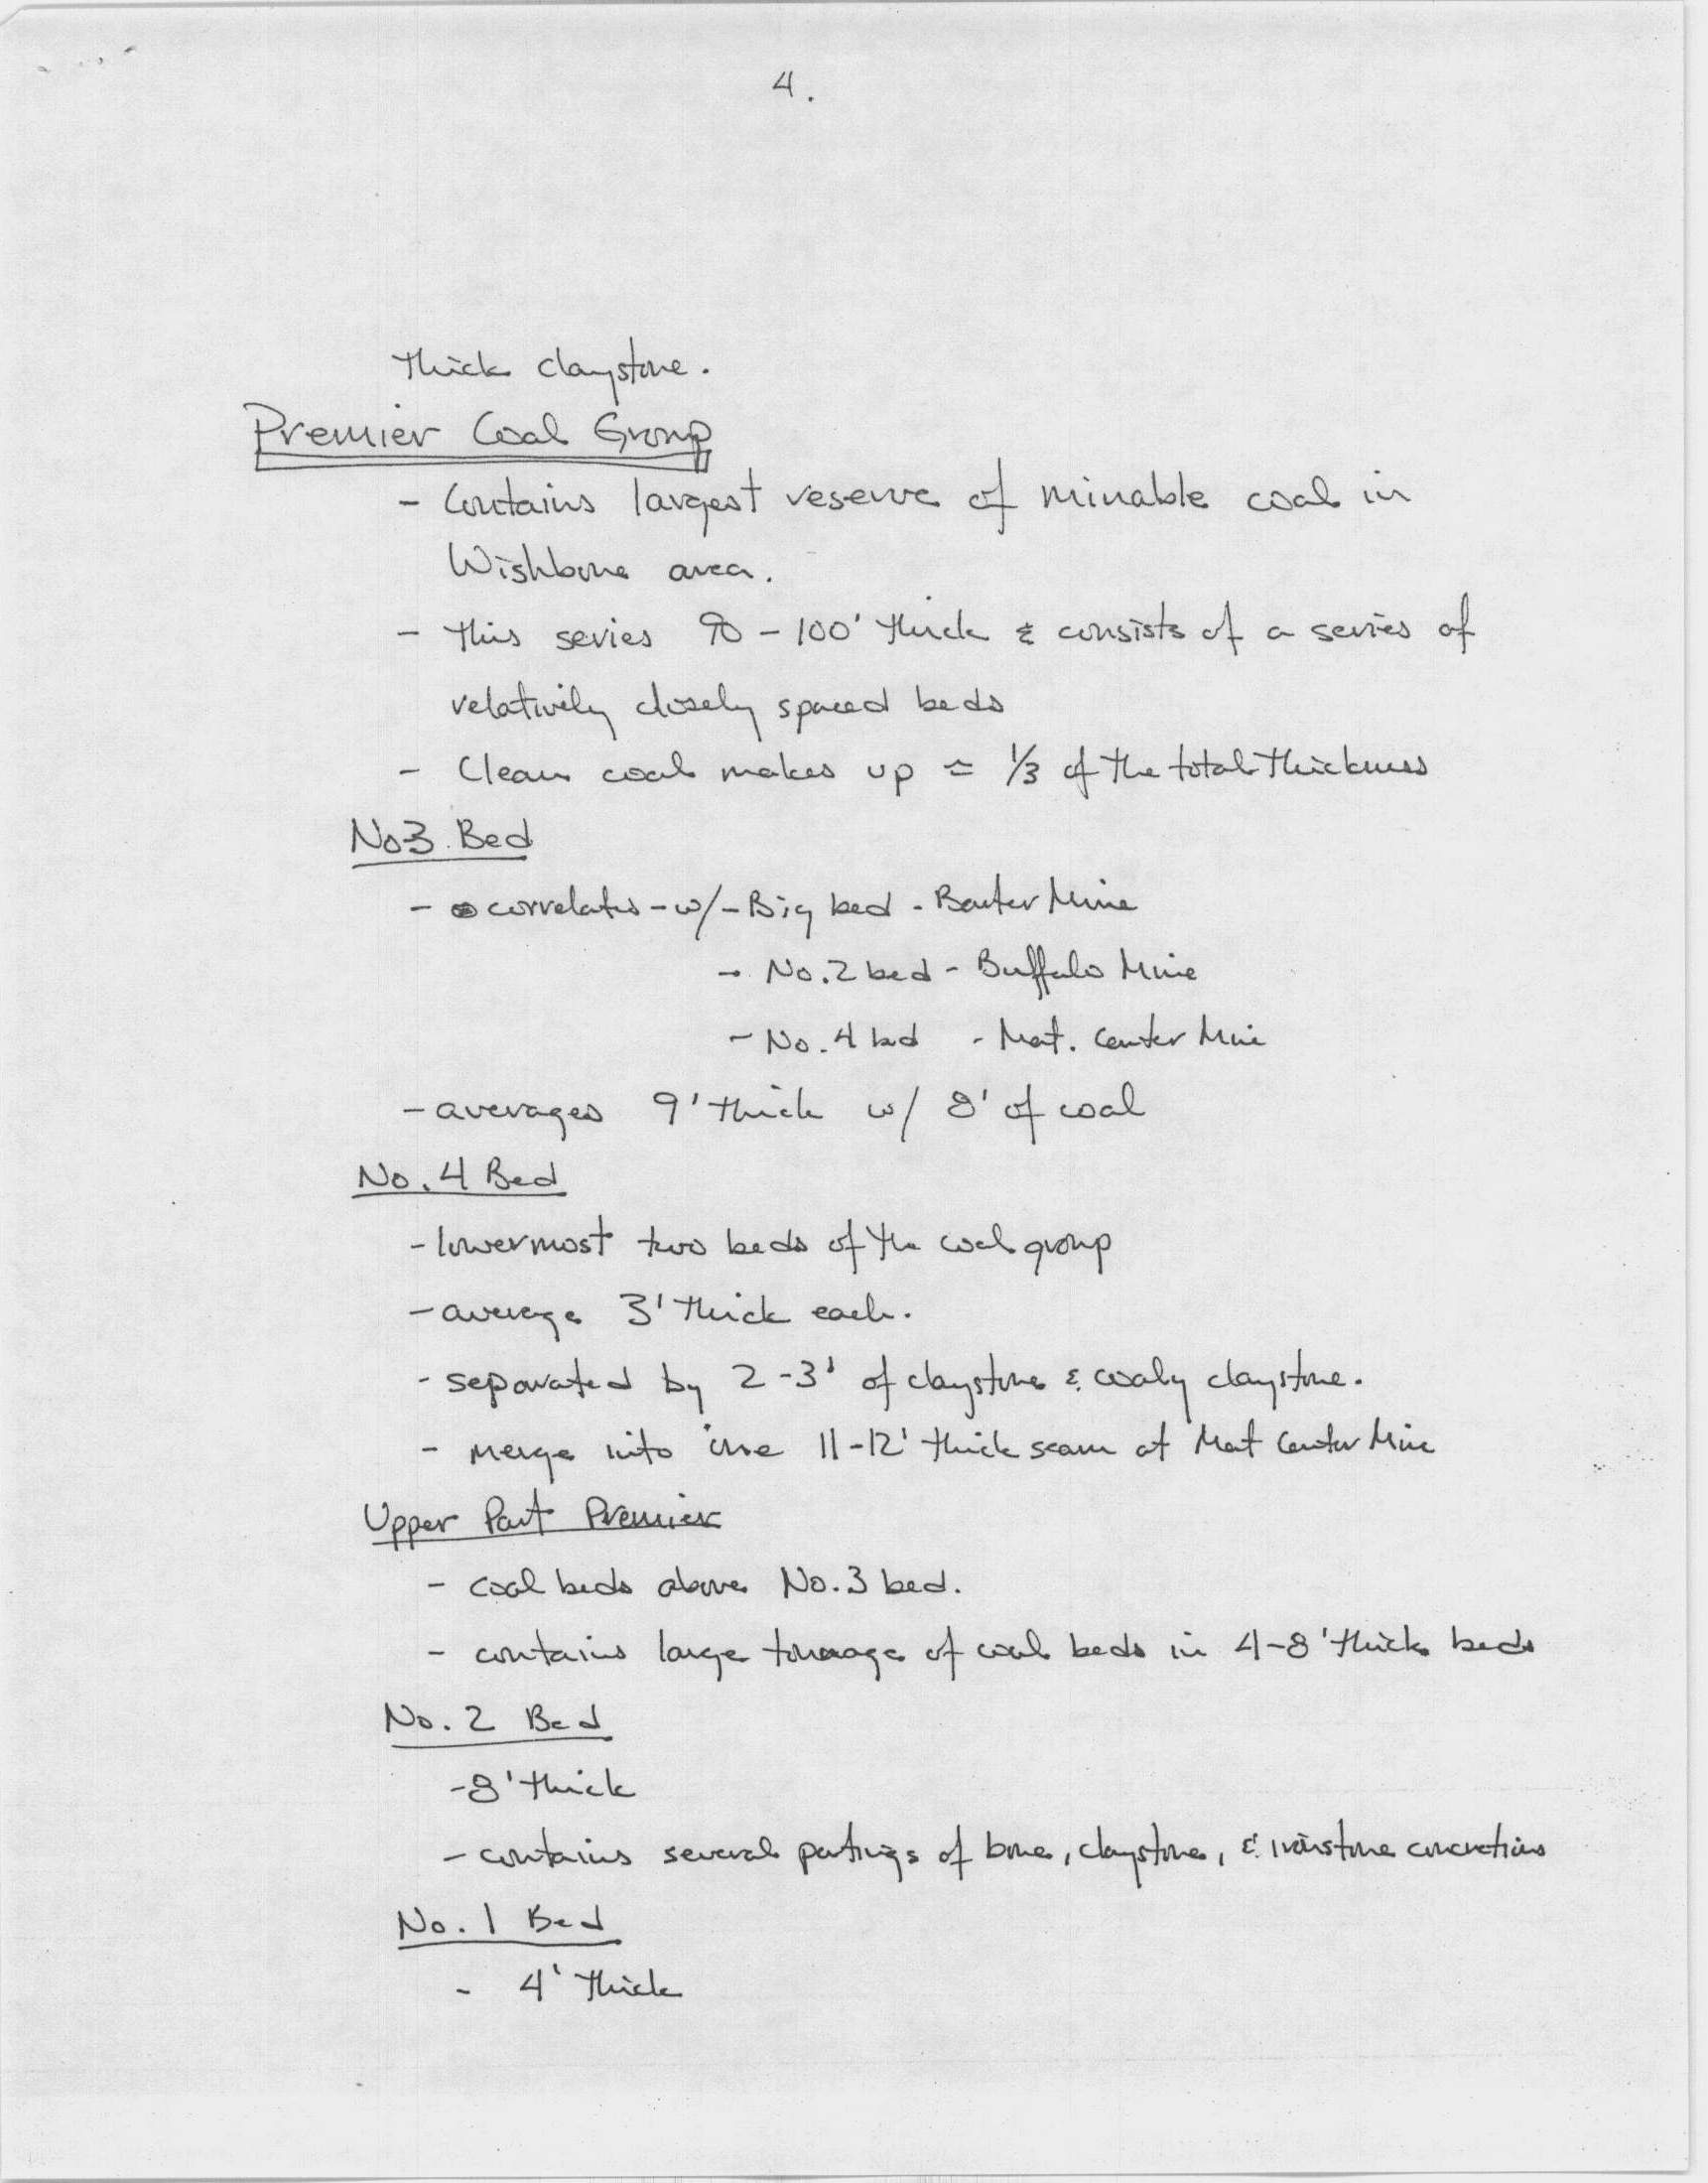 4.
thick claystone.
Premier Coal Group
- Contains largest reserve of minable coal in
Wishbone area.
- this series 90-100' thick & consists of a series of
relatively closely spaced beds
- Clean coal makes up ≈ 1/3 of the total thickness
No 3 Bed
- correlates - w/ - Big bed - Baxter Mine
- No. 2 bed - Buffalo Mine
- No. 4 bed - Mat. Center Mine
- averages 9' thick w/ 8' of coal
No. 4 Bed
- lowermost two beds of the coal group
- average 3' thick each.
- separated by 2-3' of claystone & coaly claystone.
- merge into one 11-12' thick seam at Mat Center Mine
Upper Part Premier
- coal beds above No. 3 bed.
- contains large tonnage of coal beds in 4-8' thick beds
No. 2 Bed
- 8' thick
- contains several partings of bone, claystone, & ironstone concretions
No. 1 Bed
- 4' thick